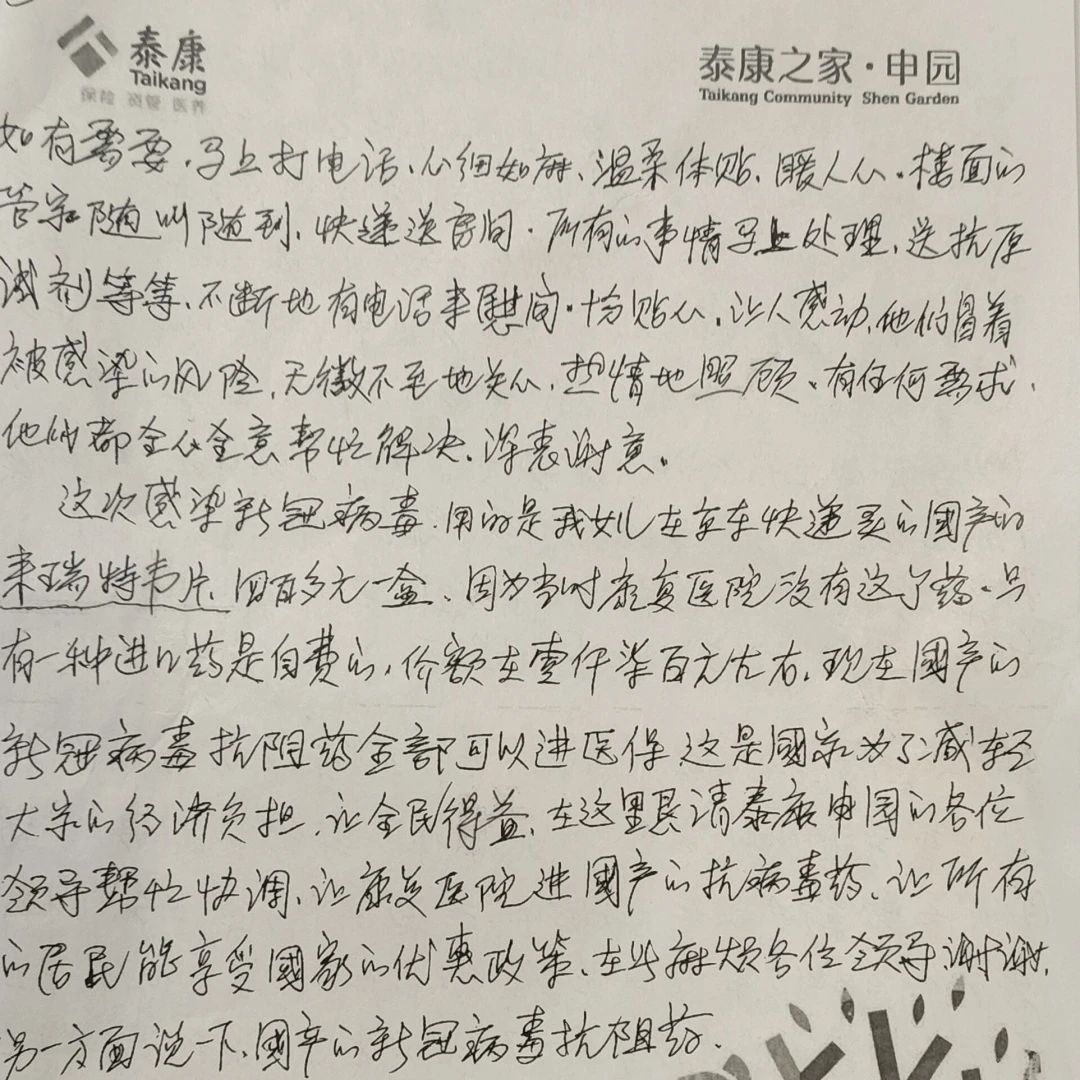 泰康
Taikang
保险 资管 医养
泰康之家·申园
Taikang Community Shen Garden
如有需要，马上打电话、心细如麻、温柔体贴、暖人心。楼面的
管家随叫随到、快递送房间．所有的事情马上处理、送抗原
试剂等等、不断地有电话来慰问．十分贴心、让人感动、他们冒着
被感染的风险、无微不至地关心、热情地照顾。有任何要求、
他们都全心全意帮忙解决、深表谢意。
这次感染新冠病毒、用的是我女儿在京东快递买的國产的
来瑞特韦片、四百多元一盒、因为当时康复医院没有这个药、只
有一种进口药是自费的，价额在壹仟柒百元左右、现在國产的
新冠病毒抗阻药全部可以进医保 这是國家为了减轻
大家的经济负担、让全民得益、在这里恳请泰康申园的各位
领导帮忙协调、让康复医院进國产的抗病毒药、让所有
的居民能享受國家的优惠政策、在此麻烦各位领导、谢谢、
另一方面说一下、國产的新冠病毒抗阻药、